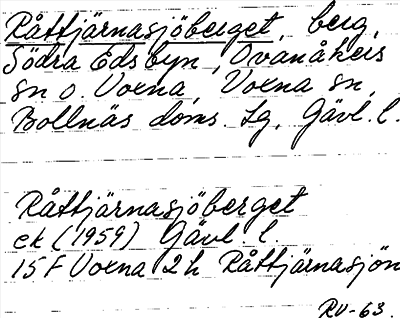 Råttjärnasjöberget, berg,
Södra Edsbyn, Ovanåkers
sn o. Voxna, Voxna sn,
Bollnäs doms. Lg, Gävl. l.
Råttjärnasjöberget
ek (1959) Gävl. l.
15 F Voxna 2 h Råttjärnasjön
RV-63.